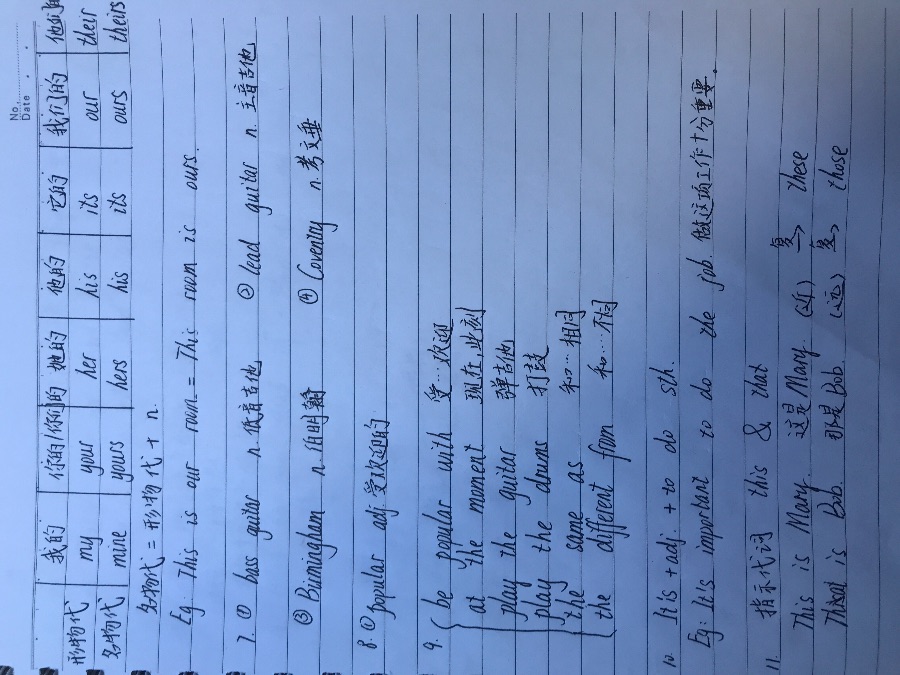 No.
Date
我的 你的/你们的 她的 他的 它的 我们的 他们的
形物代 my your her his its our their
名物代 mine yours hers his its ours theirs
名物代 = 形物代 + n.
Eg: This is our room. = This room is ours.
7. ① bass guitar n. 低音吉他 ② lead guitar n. 主音吉他
③ Birmingham n. 伯明翰 ④ Coventry n. 考文垂
8. ① popular adj. 受欢迎的
9. be popular with 受…欢迎
at the moment 现在,此刻
play the guitar 弹吉他
play the drums 打鼓
the same as 和…相同
the different from 和…不同
10. It is + adj. + to do sth.
Eg: It is important to do the job. 做这项工作十分重要。
11. 指示代词 this & that
This is Mary. 这是Mary. (近) 复> these
That is Bob. 那是Bob. (远) 复> those